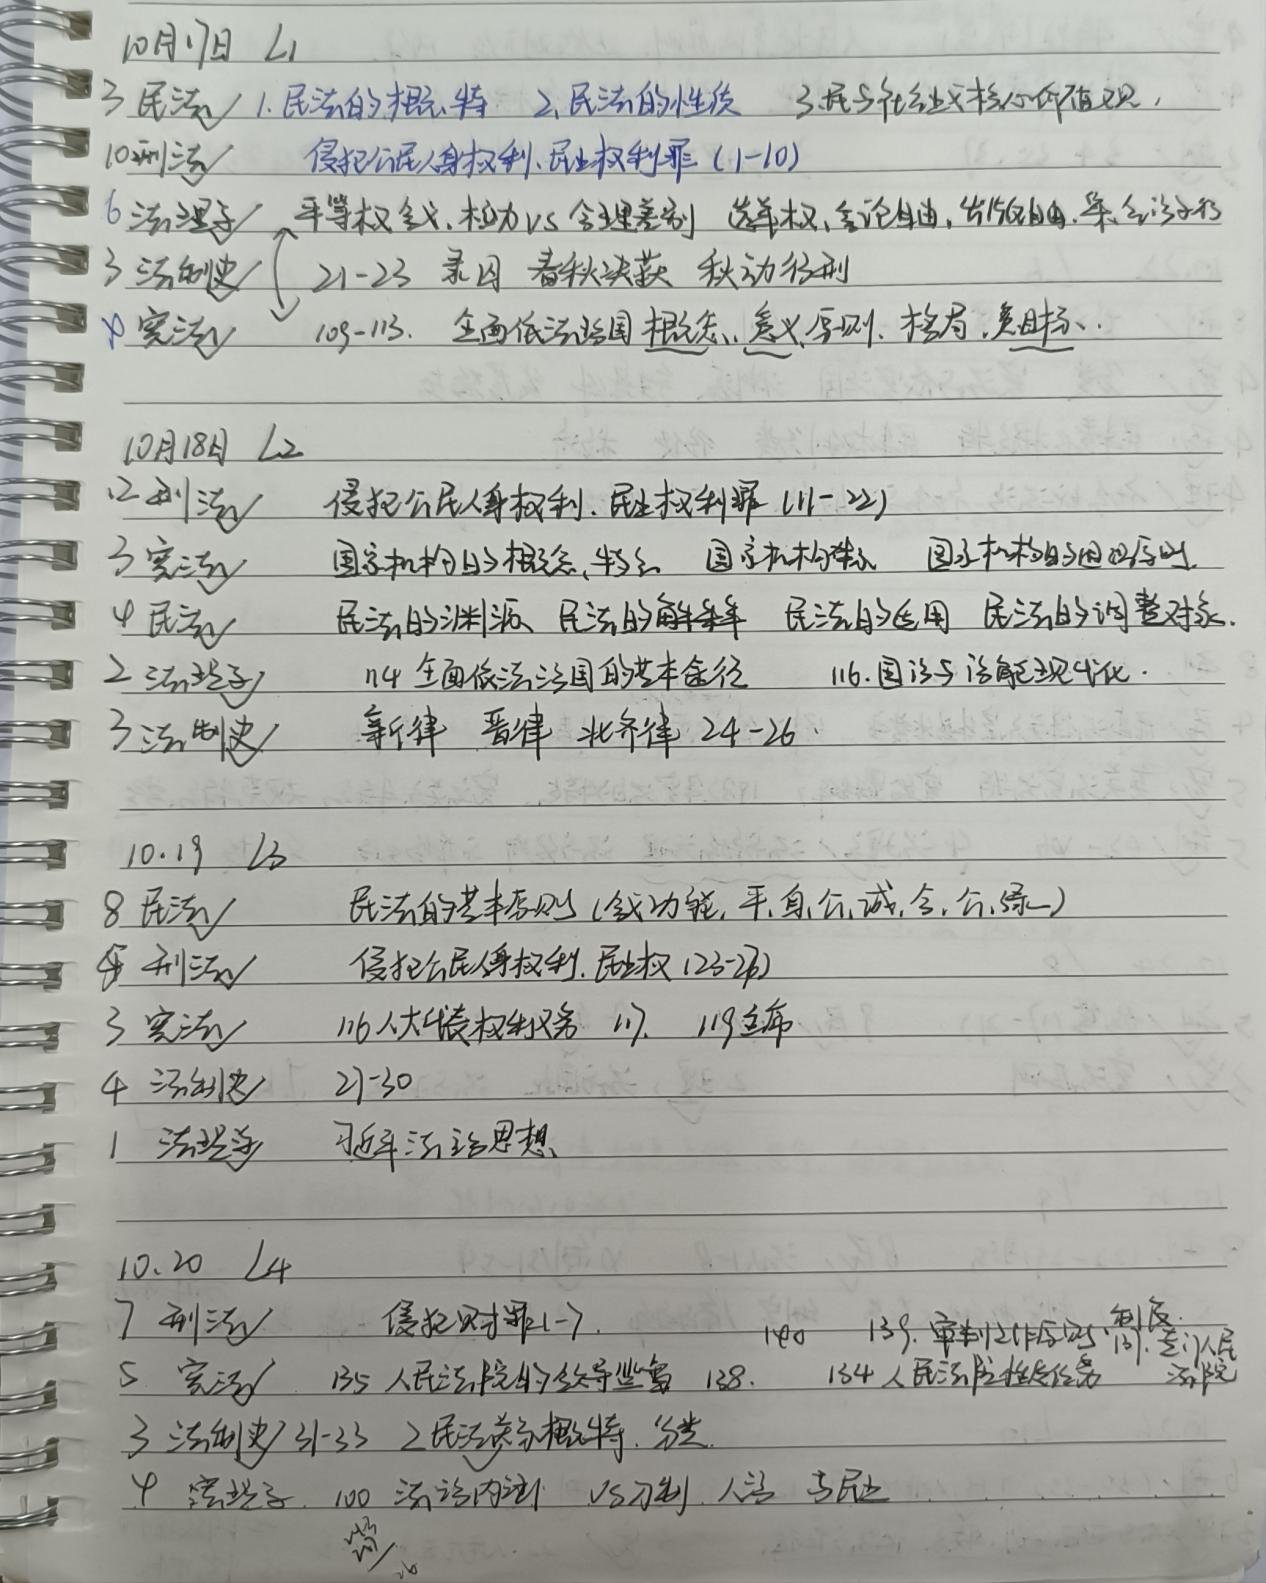 10月17日 L1
3 民法 1.民法的概念、特 2.民法的性质 3.民与社会主义核心价值观.
10 刑法 侵犯公民人身权利、民主权利罪(1-10)
6 法理学 平等权含义、权力VS合理差别 选举权、言论自由,出版自由.
3 法制史 21-23 录囚 春秋决狱 秋冬行刑
宪法 109-113. 全面依法治国概念、意义、原则、格局、总目标.
10月18日 L2
12 刑法 侵犯公民人身权利、民主权利罪(11-22)
3 宪法 国家机构的概念、特点 国家机构体系 国家机构的组织原则
4 民法 民法的渊源 民法的解释 民法的适用 民法的调整对象.
2 法理学 114 全面依法治国的基本途径 116.国治与治能现代化.
3 法制史 新律 晋律 北齐律 24-26
10.19 L3
8 民法 民法的基本原则(含义功能,平,自,公,诚,合,公,绿)
5 刑法 侵犯公民人身权利、民主权(23-27)
3 宪法 116人大代表权利义务 117. 119
4 法制史 27-30
1 法理学 习近平法治思想
10.20 L4
7 刑法 侵犯财产罪1-7.
140 139.审判工作原则、制度. 137.专门人民法院
5 宪法 135 人民法院的领导监督 138. 134人民法院性质任务
3 法制史 31-33 2民法关系概念特、分类.
4 法理学 100 法治内涵 VS 刀制 人治 与民主